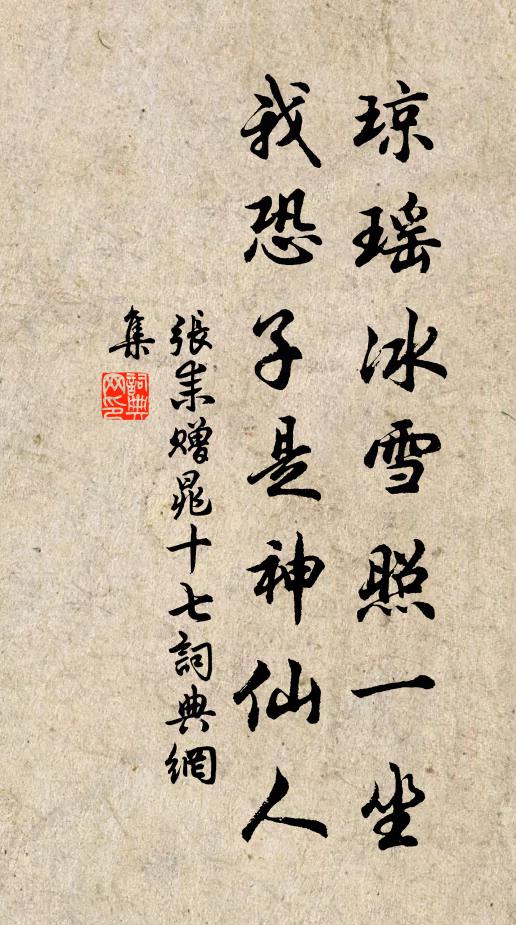 琼瑶冰雪照一坐
我恐子是神仙人
張耒贈晁十七詞典網
集
詞典
网印